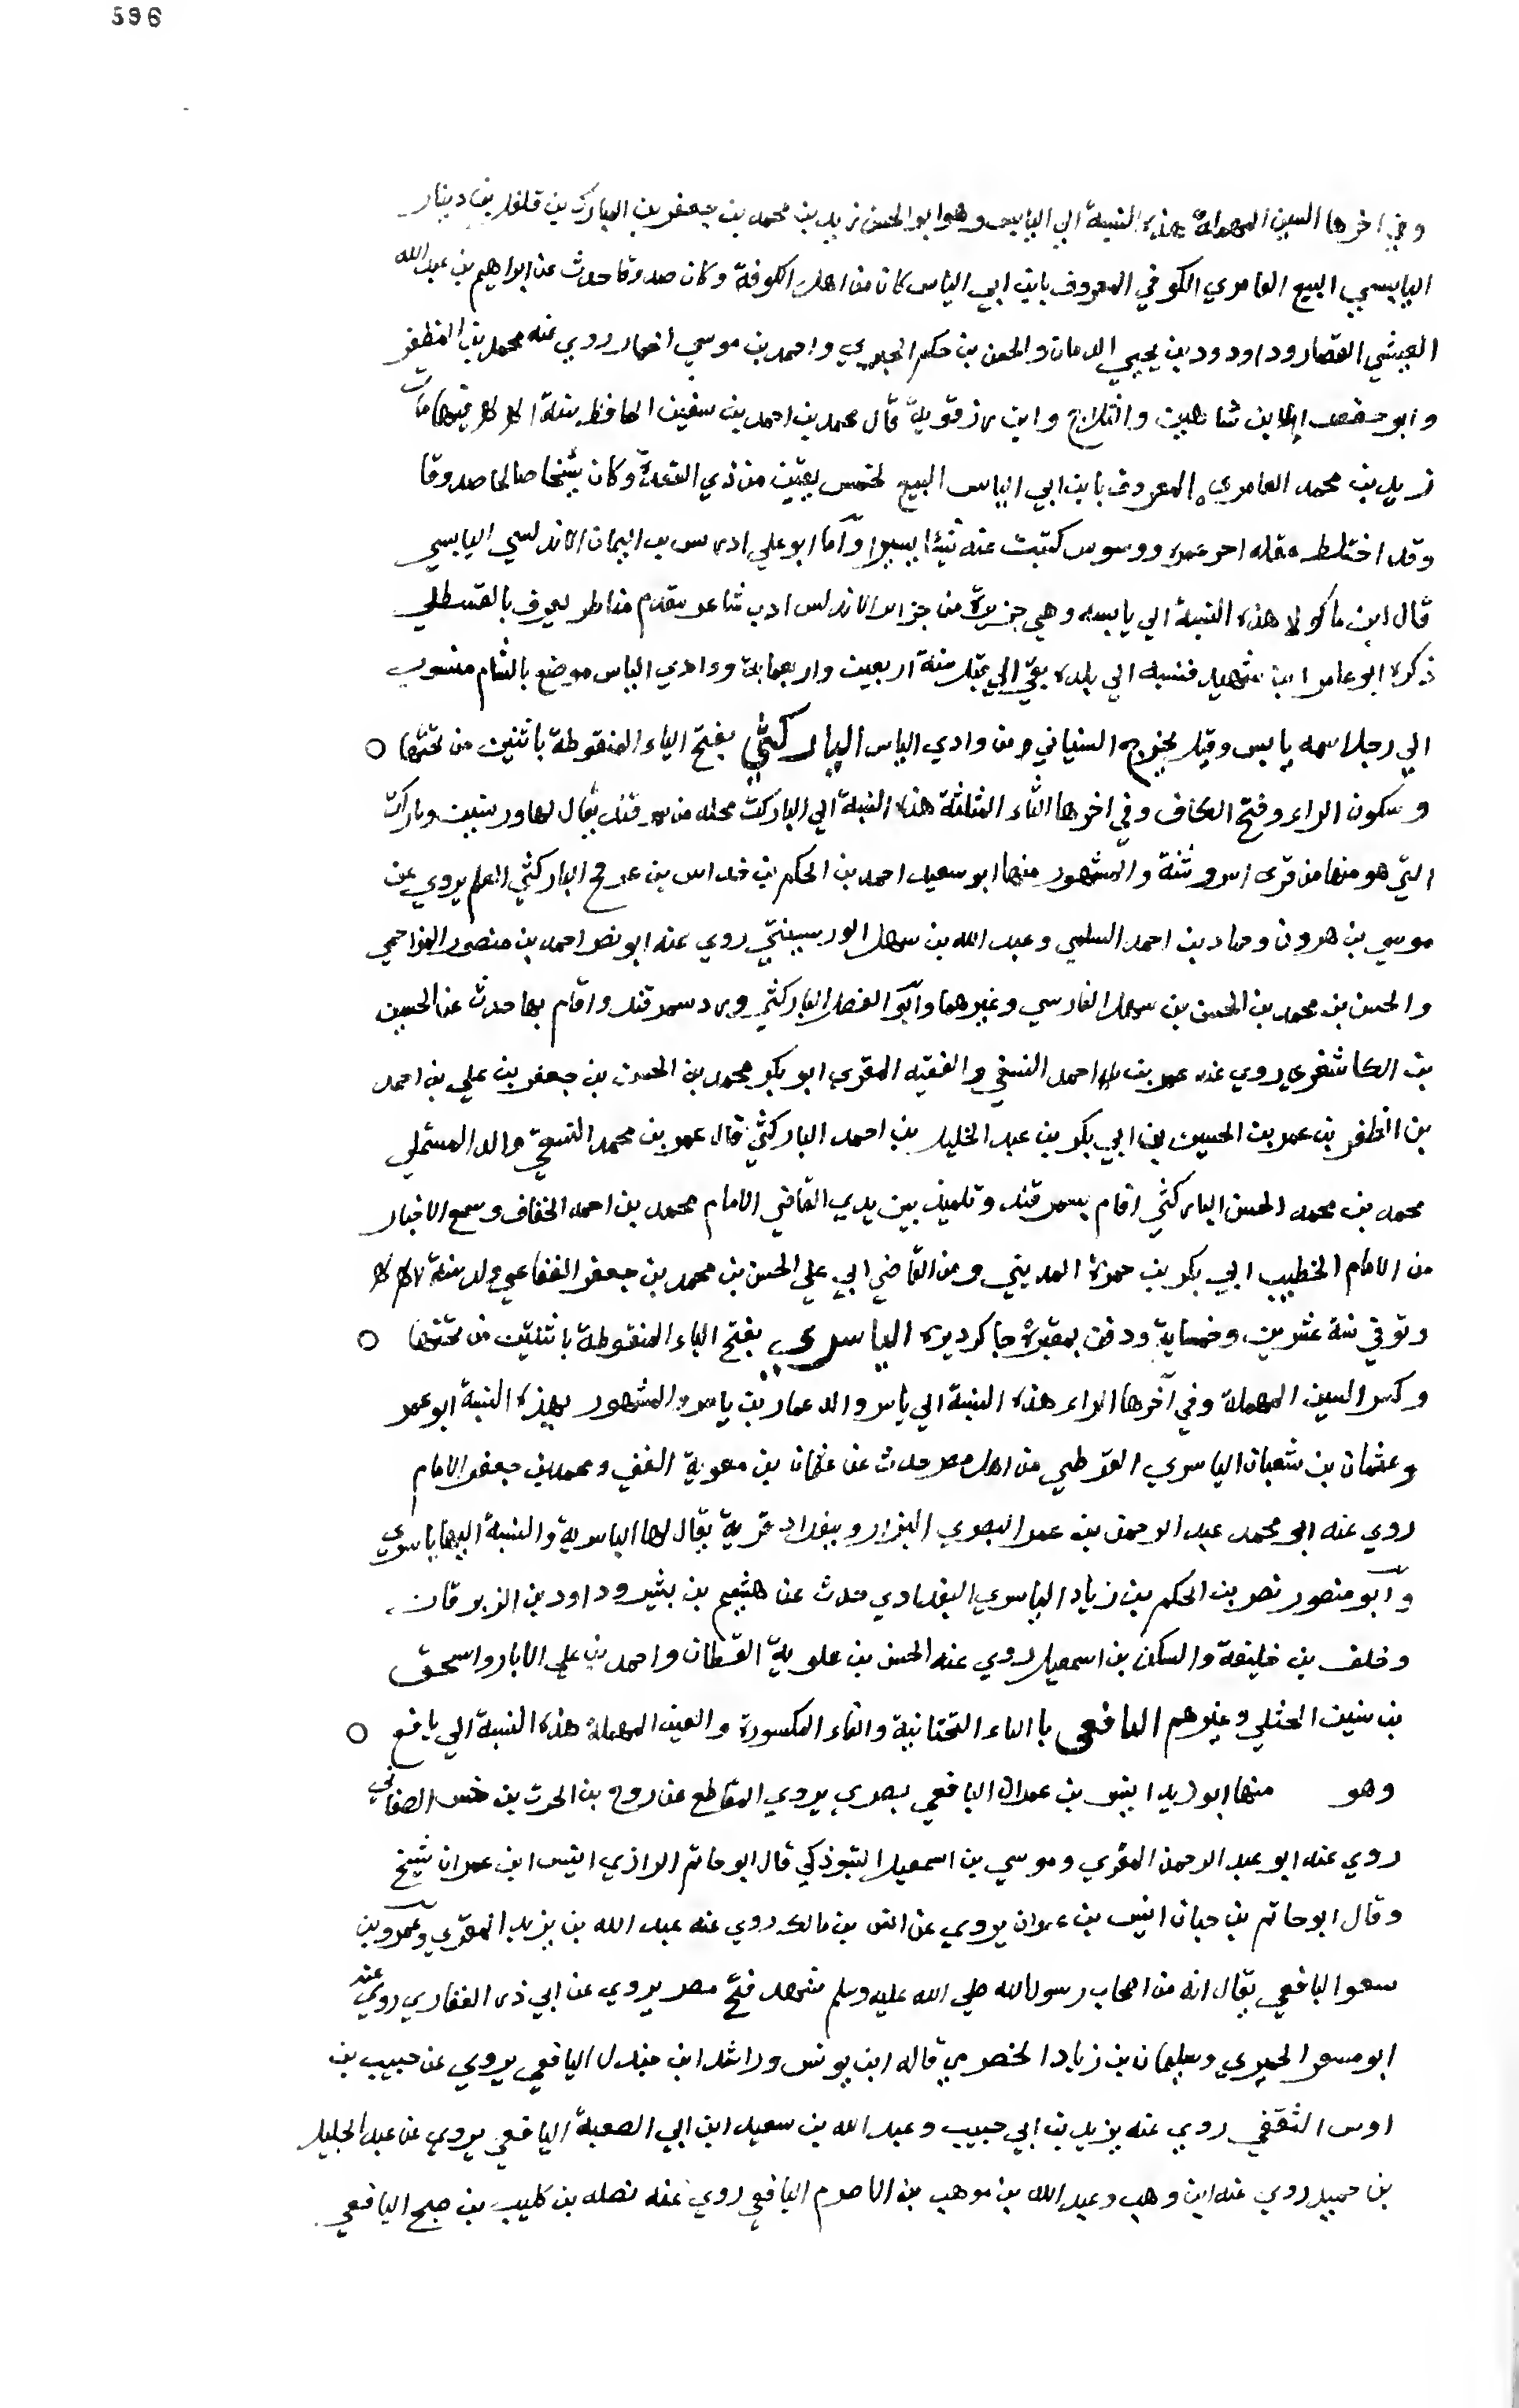 596
وفي اخرها السين المهملة هذه النسبة الي اليابس وهو ابو الحسن زيد بن محمد بن جعفر بن المبارك بن فلفل بن دينار
اليابسي البيع العامري الكوفي المعروف بابن ابي الياس كان من اهل الكوفة وكان صدوقا حدث عن ابراهيم بن عبد الله
العبشي القصار وداود بن يحيي الدهان والحسن بن حكم الحبري واحمد بن موسي الحمار روي عنه محمد بن المظفر
وابو حفص بن شاهين وابن رزقويه قال محمد بن احمد بن سفين الحافظ سنة فيها مات
زيد بن محمد العامري المعروف بابن ابي الياس البيع لخمس بقين من ذي القعدة وكان شيخا صالحا صدوقا
وقد اختلط عقله اخر عمره ووسوس كتبت عنه شيئا يسيرا واما ابو علي ادريس بن اليمان الاندلسي اليابسي
قال ابن ماكولا هذه النسبة الي يابسه وهي جزيرة من جزاير الاندلس اديب شاعر متقدم مناظر يعرف بالقسطلي
ذكره ابو عامر ابن شهيد فنسبه الي بلده بقي الي قبل سنة اربعين واربعماية ووادي اليابس موضع بالشام منسوب
الي رجل اسمه يابس وقيل يخرج السفياني من وادي اليابس الياركثي بفتح الياء المنقوطة باثنين من تحتها ○
وسكون الراء وفتح الكاف وفي اخرها الثاء المثلثة هذه النسبة الي الياركث محله من سمرقند يقال لها ورسنين وياركث
التي هو منها من قرى اسروشنة والمشهور منها ابو سعيد احمد بن الحكم بن خداس بن عرفج الياركثي المعلم يروي عن
موسي بن هرون وحماد بن احمد السلمي وعبد الله بن سهل الورسنيني روي عنه ابو نصر احمد بن منصور المزاحمي
والحسن بن محمد بن الحسن بن سهل الفارسي وغيرهما وابو الفضل الياركثي ورد سمرقند واقام بها حدث عن الحسين
بن الكاشغري روي عنه عمر بن احمد النسفي والفقيه المقري ابو بكر محمد بن الحسن بن جعفر بن علي بن احمد
بن المظفر بن عمر بن الحسين بن ابي بكر بن عبد الخليل بن احمد الياركثي قال عمر بن محمد النسفي والد المستملي
محمد بن محمد الحسن الياركثي اقام بسمرقند وتلميذ بين يدي القاضي الامام محمد بن احمد الخفاف وسمع الاخبار
من الامام الخطيب ابي بكر بن حمزة المديني ومن القاضي ابي علي الحسن بن محمد بن جعفر الفقاعي ولد سنة
وتوفي سنة عشرين وخمساية ودفن بمقبرة جاكرديزه الياسري بفتح الياء المنقوطة باثنتين من تحتها ○
وكسر السين المهملة وفي آخرها الراء هذه النسبة الي ياسر والد عمار بن ياسر والمشهور بهذه النسبة ابو عمر
وعثمان بن شعبان الياسري القرطي من اهل مصر حدث عن عثمان بن معوية الغفي ومحمد بن جعفر الامام
روي عنه ابو محمد عبد الرحمن بن عمر البصري البزار وببغداد قرية يقال لها الياسرية والنسبة اليها ياسري
وابو منصور نصر بن الحكم بن زياد الياسري البغدادي حدث عن هشيم بن بشير وداود بن الزبرقان
وخلف بن خليفة والسكن بن اسمعيل روي عنه الحسن بن علويه القطان واحمد بن علي الابار واسحق
بن سنين الختلي وغيرهم اليافعي با الياء التحتانية والفاء المكسورة والعين المهملة هذه النسبة الي يافع ○
وهو منها ابو زيد انيس بن عمران اليافعي بصري يروي المقاطع عن روح بن الحرث بن حنس الصنعاني
روي عنه ابو عبد الرحمن المقري وموسي بن اسمعيل التبوذكي قال ابو حاتم الرازي انيس ابن عمران شيخ
وقال ابو حاتم بن حبان انيس بن عمران يروي عن انس بن مالك روي عنه عبد الله بن يزيد المقري وعمرو بن
سعوا اليافعي يقال انه من اصحاب رسول الله صلي الله عليه وسلم شهد فتح مصر يروي عن ابي ذر الغفاري روي عنه
ابو مسعر الحميري وسليمان بن زياد الحضرمي قاله ابن يونس وراشد ابن جندل اليافعي يروي عن حبيب بن
اوس الثقفي روي عنه يزيد بن ابي حبيب وعبد الله بن سعيد ابن ابي الصعبة اليافعي يروي عن عبد الجليل
بن حميد روي عنه ابن وهب وعبد الله بن موهب بن الاصرم اليافعي روي عنه نضله بن كليب بن صبح اليافعي